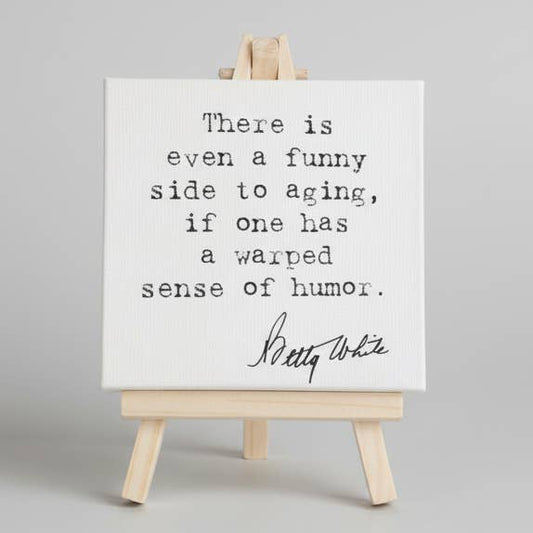 There is
even a funny
side to aging,
if one has
a warped
sense of humor.
Betty White